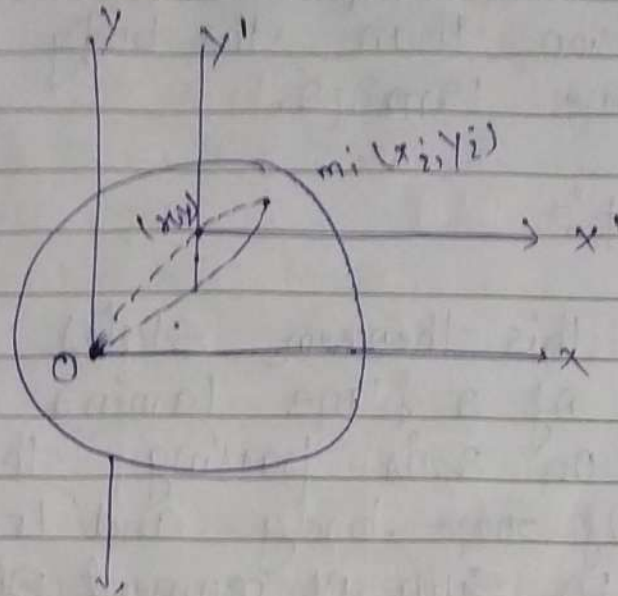 y y'
mi (xi, yi)
(x,y)
x'
O
x